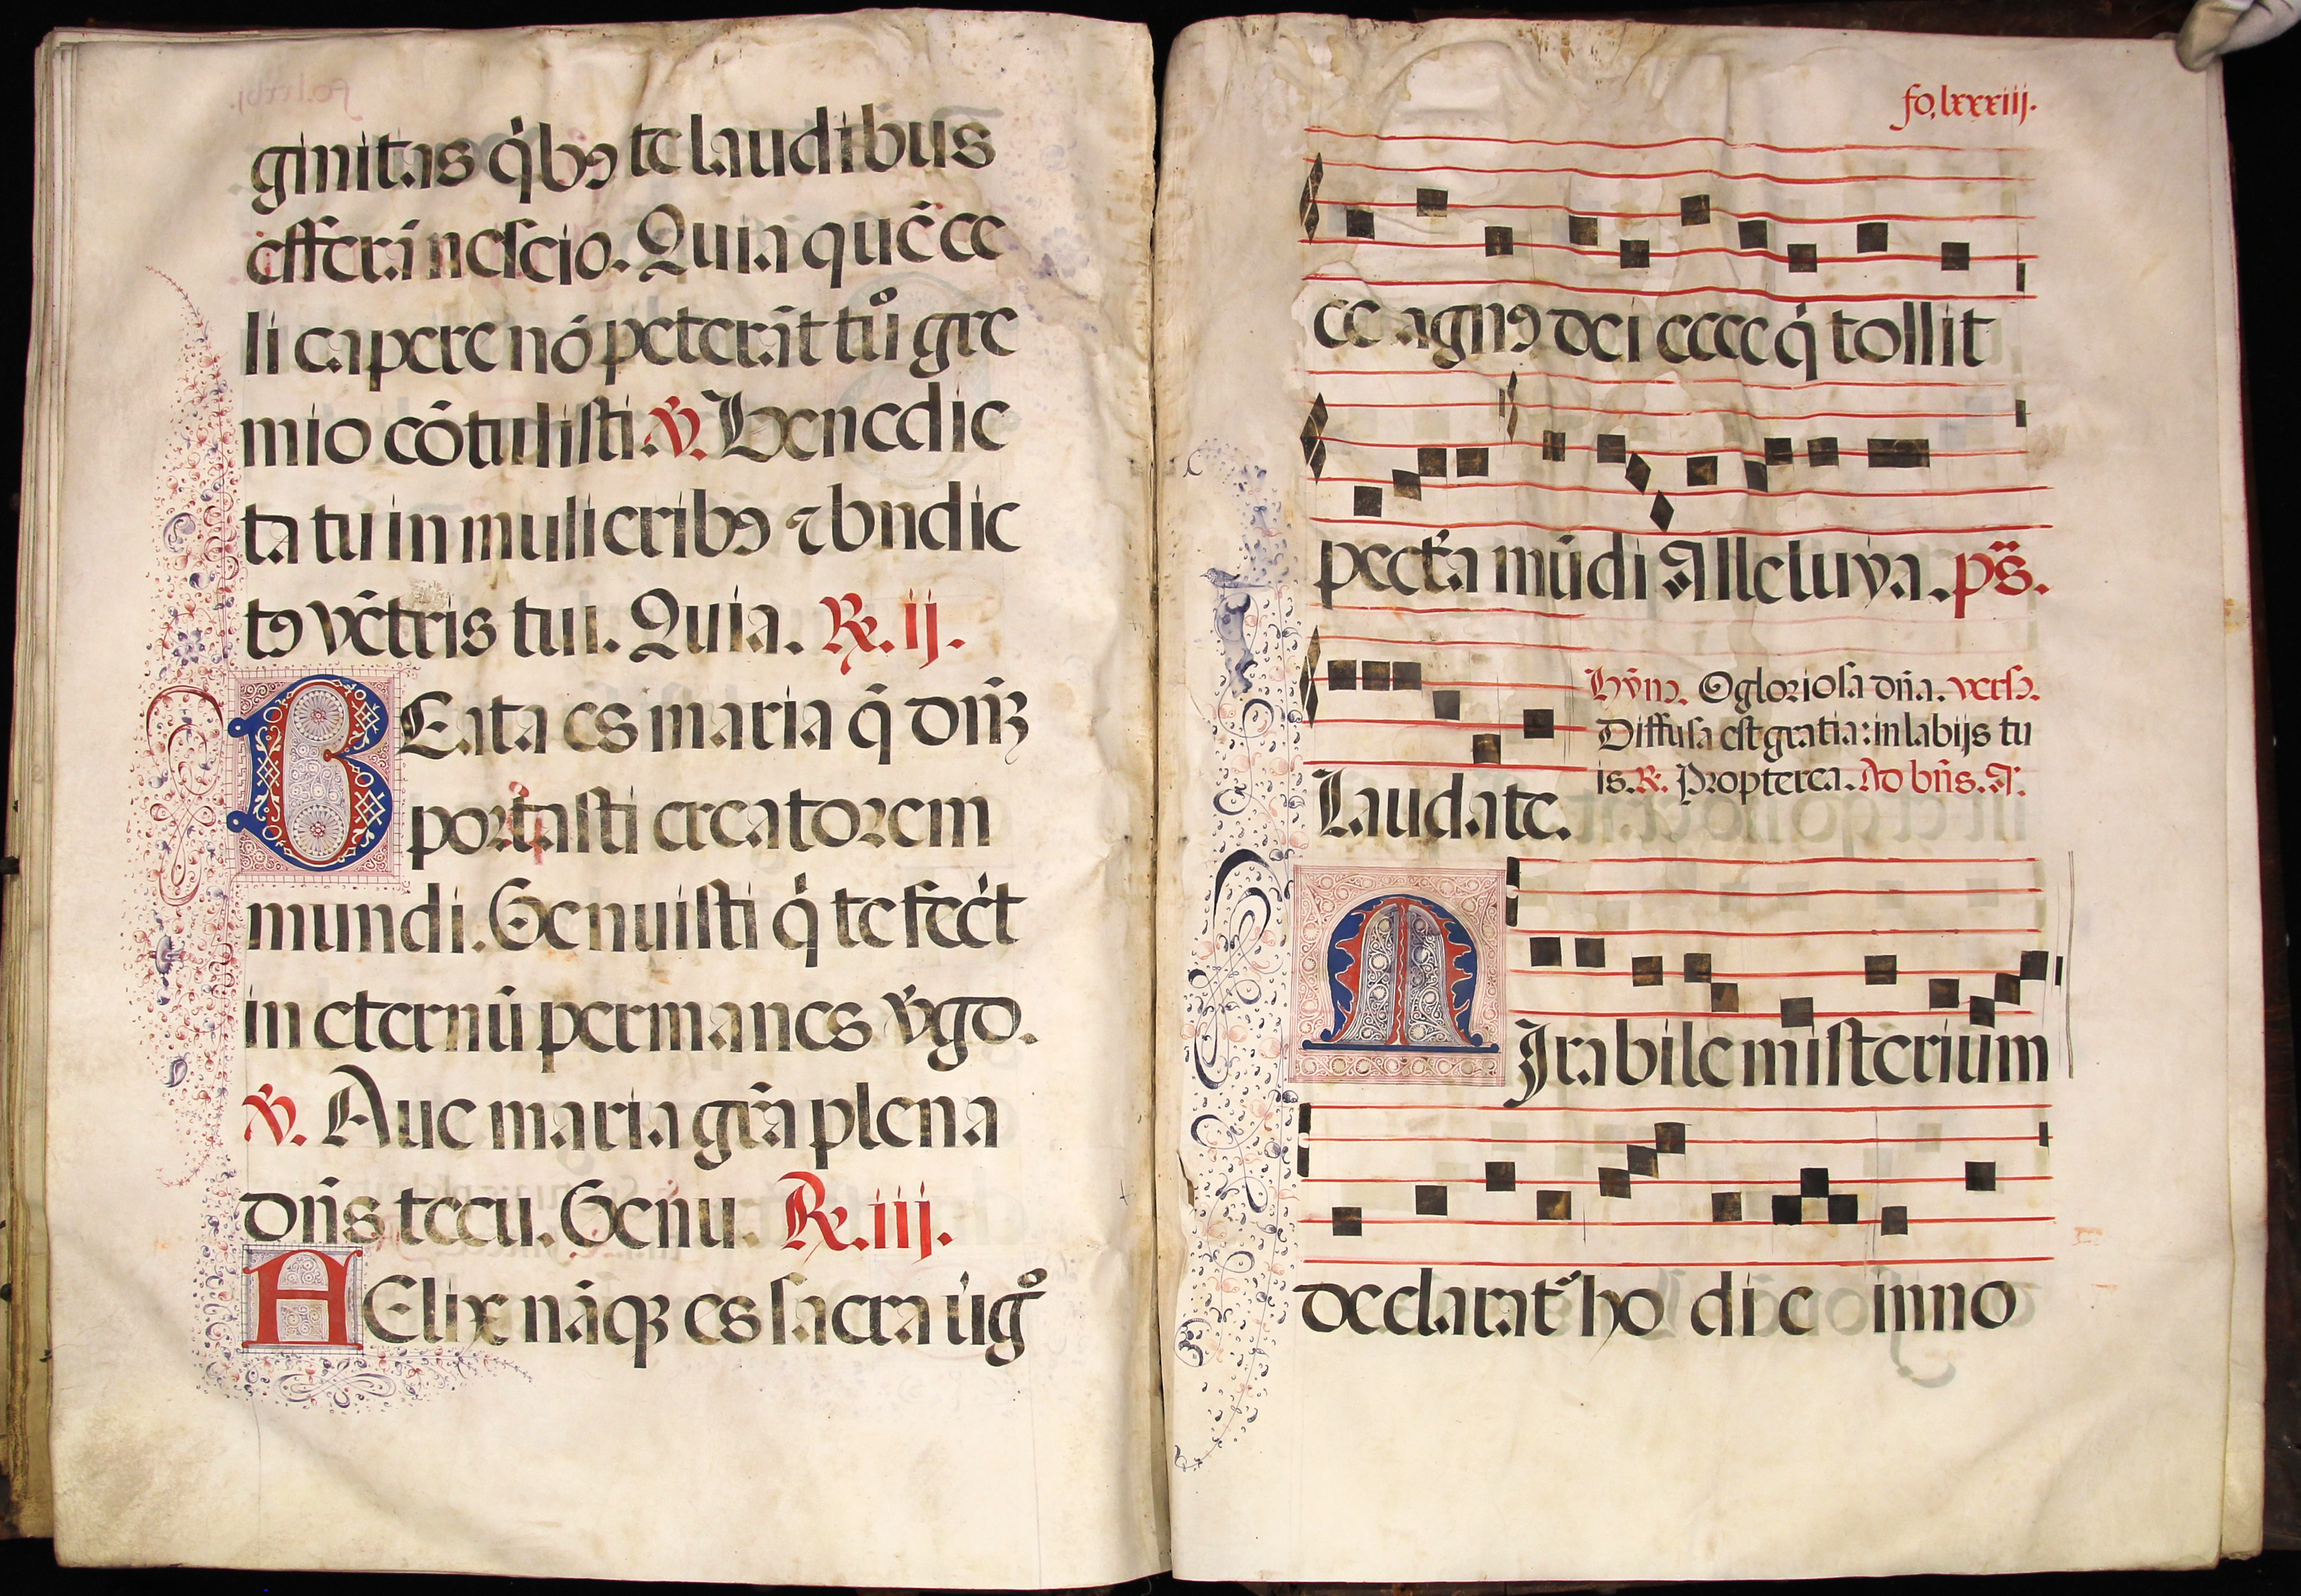 ginitas q̇bꝯ te laudibus
efferā nescio. Quia quē ce
li capere nō poterāt tuͦ gre
mio cōtulisti. ℣. Benedic
ta tu in mulieribꝯ ⁊ bn̄dic
tꝯ vētris tui. Quia. ℟. ij.
BEata es maria q̄ dn̄ꝫ
portasti creatorem
mundi. Genuisti q̇ te fecit
in eternū permanes v̇go.
℣. Aue maria gr̄a plena
dn̄s tecu. Genu. ℟. iij.
FElix nāqꝫ es sacra uigͦ
fo. lxxxiij.
ce agnꝯ dei ecce q̇ tollit
peccta mūdi Alleluya. ps̄.
Hym̄. O gloriosa dn̄a. vers.
Diffusa est gratia: in labijs tu
is. ℟. Propterea. Ad bn̄s. A.
Laudate.
MIrabile misterium
declarat᷑ ho di e inno